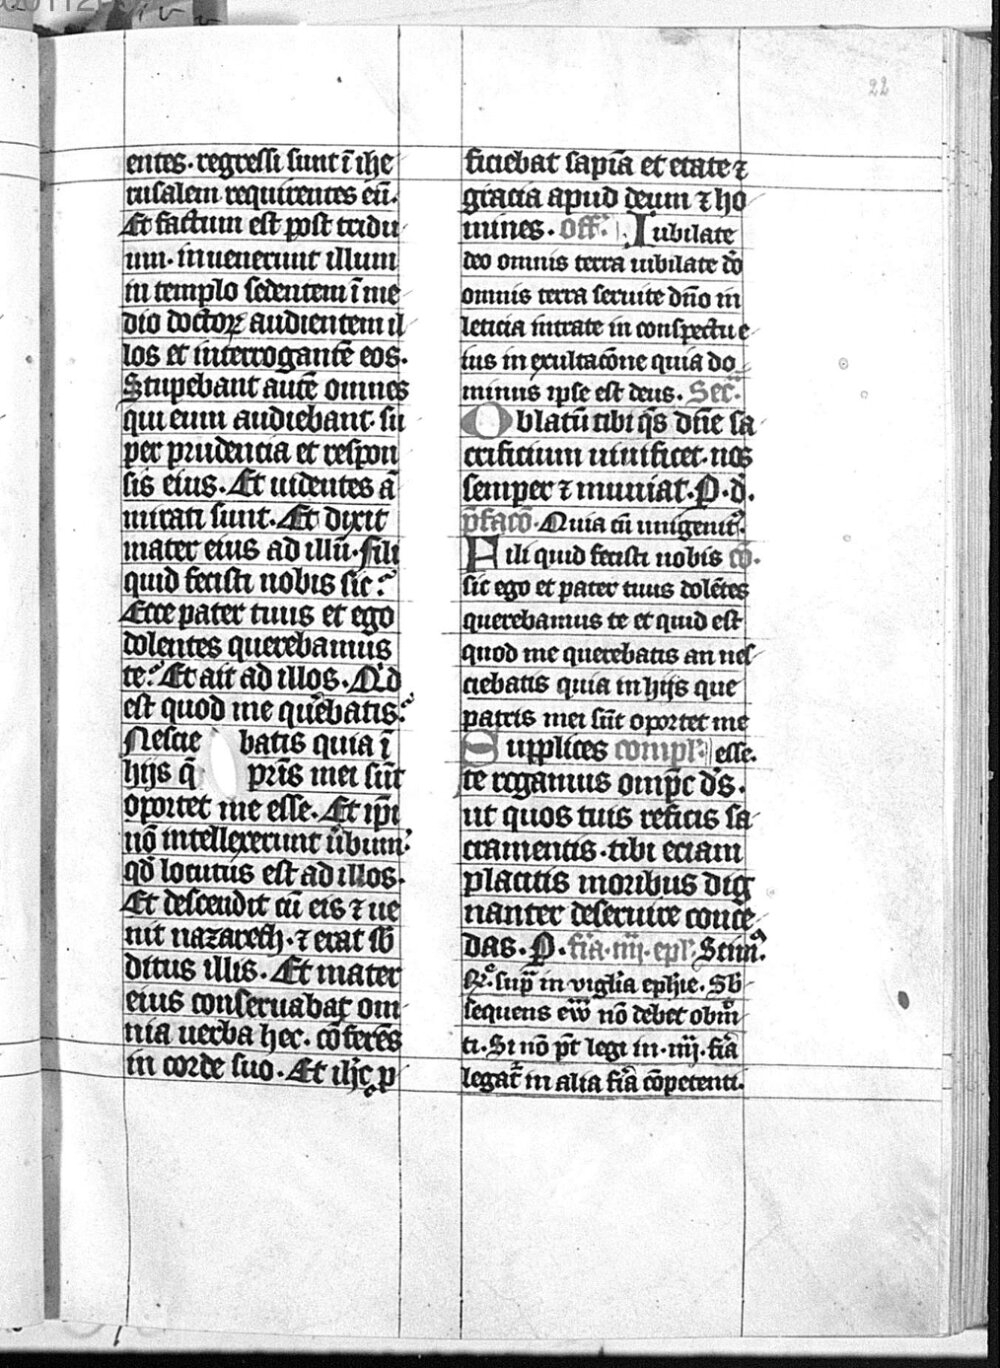 22
entes. regressi sunt ī ihe
rusalem requirentes eū.
Et factum est post tridu
um. inuenerunt illum
in templo sedentem ī me
dio doctoꝝ audientem il
los et interrogantē eos.
Stupebant autē omnes
qui eum audiebant. su
per prudencia et respon
sis eius. Et uidentes ā
mirati sunt. Et dixit
mater eius ad illū. fili
quid fecisti nobis sic?
Ecce pater tuus et ego
dolentes querebamus
te? Et ait ad illos. Qͥd
est quod me quēbatis?
Nescie batis quia ī
hijs q̄ pr̄is mei sūt
oportet me esse. Et ip̄i
nō intellexerunt ūbum.
qd̄ locutus est ad illos.
Et descendit cū eis ⁊ ue
nit nazareth. ⁊ erat sb̄
ditus illis. Et mater
eius conseruabat om
nia uerba hec. cōferēs
in corde suo. Et ih̄c ꝓ
ficiebat sapīa et etate ⁊
gracia apud deum ⁊ ho
mines. off. Iubilate
deo omnis terra iubilate dō
omnis terra seruite dn̄o in
leticia intrate in conspectu e
ius in exultacōne quia do
minus ipse est deus. Sec.
Oblatū tibi q̄s dn̄e sa
crificium uiuificet. nos
semper ⁊ muniat. P. d.
p̄facō. Quia cū unigenit᷒.
Fili quid fecisti nobis cō.
sic ego et pater tuus dolētes
querebamus te et quid est
quod me querebatis an nes
ciebatis quia in hijs que
patris mei sūt oportet me
Supplices compl. esse.
te rogamus omp̄c ds̄.
ut quos tuis reficis sa
cramentis. tibi eciam
placitis moribus dig
nanter deseruire conce
das. P. fīa. iiij. epl. Scim᷒.
R͛. sup̄ in vigl̄ia eph̄ie. Sb̄
sequens ew̄ nō debet obmͦ
ti. Si nō pt̄ legi in. iiij. fīa
legat᷑ in alia fīa cōpetenti.